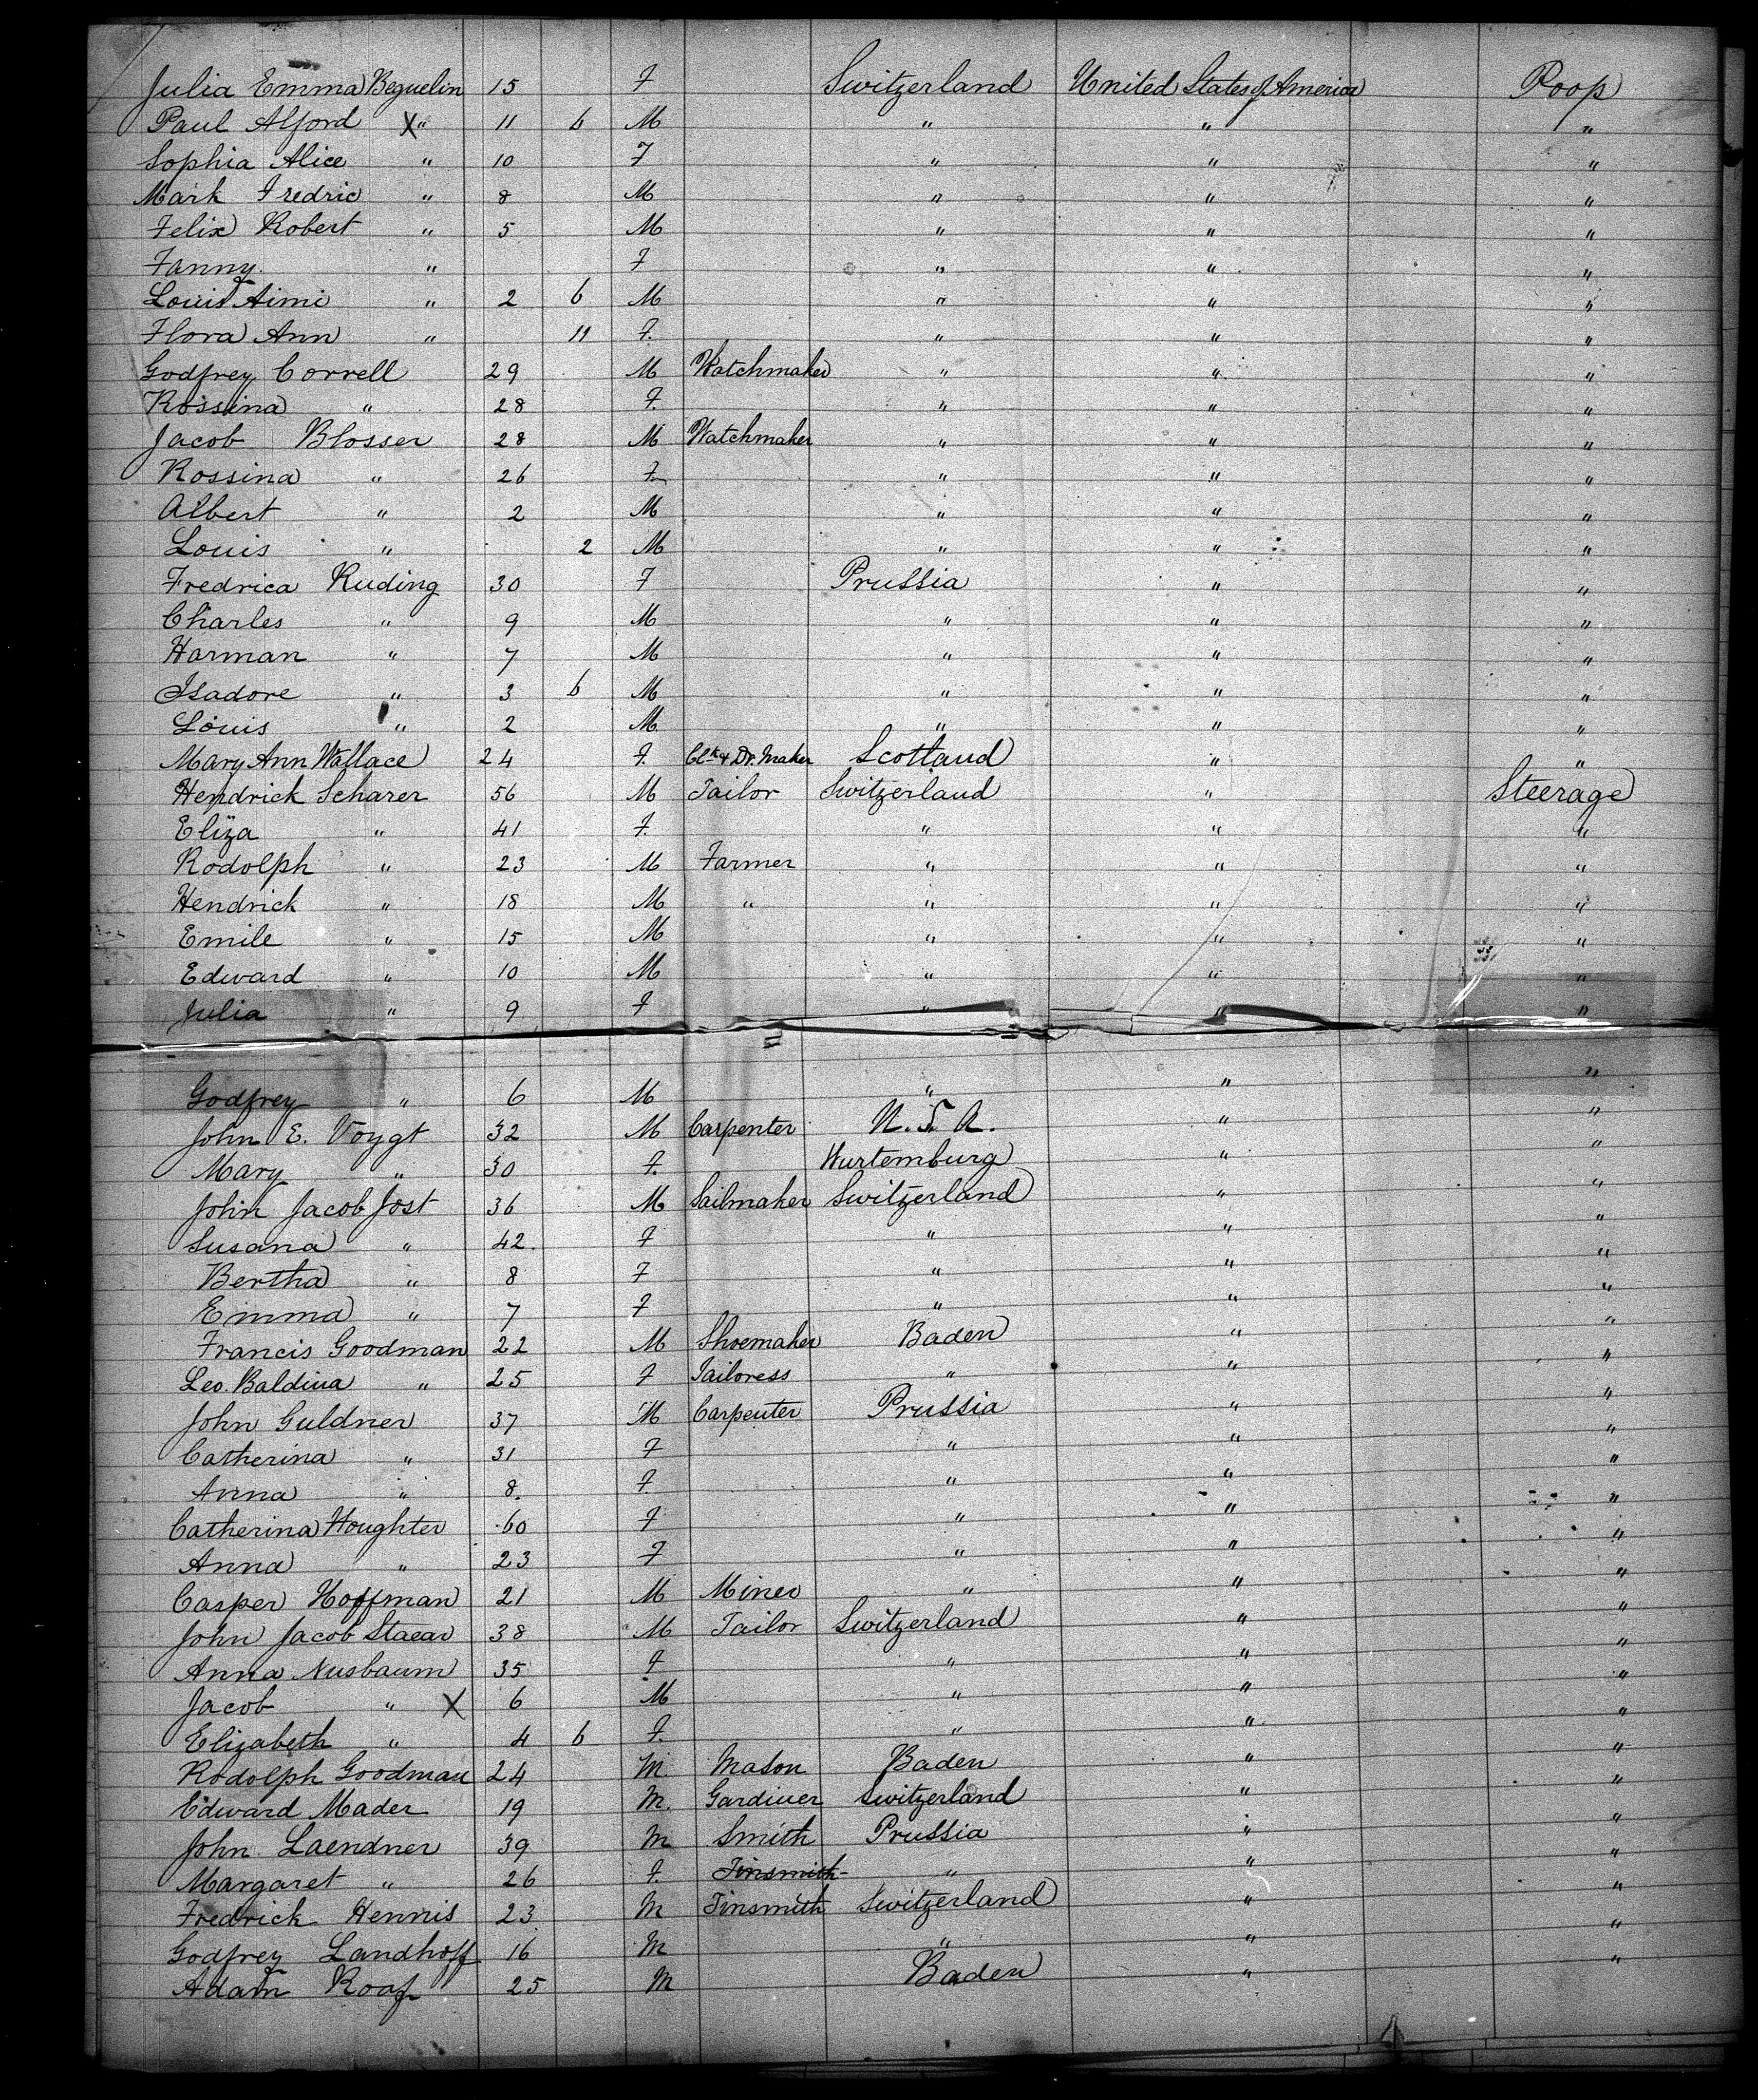 Julia Emma Beguelin 15 F Switzerland United States of America Poop
Paul Alford X " 11 6 M " " "
Sophia Alice " 10 F " " "
Mark Fredric " 8 M " " "
Felix Robert " 5 M " " "
Fanny " F " " "
Louis Aimi " 2 6 M " " "
Flora Ann " 11 F. " " "
Godfrey Correll 29 M Watchmaker " " "
Rossina " 28 F. " " "
Jacob Blosser 28 M Watchmaker " " "
Rossina " 26 F " " "
Albert " 2 M " " "
Louis " 2 M " " "
Fredrica Ruding 30 F Prussia " "
Charles " 9 M " " "
Harman " 7 M " " "
Isadore " 3 6 M " " "
Louis " 2 M. " " "
Mary Ann Wallace 24 F. Clk & Dr. Maker Scotland " "
Hendrick Scharer 56 M Tailor Switzerland " Steerage
Eliza " 41 F. " " "
Rodolph " 23 M Farmer " " "
Hendrick " 18 M " " " "
Emile " 15 M " " "
Edward " 10 M " " "
Julia " 9 F " " "
Godfrey " 6 M " " "
John E. Voygt 32 M Carpenter U.S.A. " "
Mary " 30 F. Wurtemburg " "
John Jacob Jost 36 M Sailmaker Switzerland " "
Susana " 42. F " " "
Bertha " 8 F " " "
Emma " 7 F " " "
Francis Goodman 22 M Shoemaker Baden " "
Leo. Baldina " 25 F Tailoress " " "
John Guldner 37 M Carpenter Prussia " "
Catherina " 31 F " " "
Anna " 8. F " " "
Catherina Houghter 60 F " " "
Anna " 23 F " " "
Casper Hoffman 21 M Miner " " "
John Jacob Staear 38 M Tailor Switzerland " "
Anna Nusbaum 35 F " " "
Jacob " X 6 M " " "
Elizabeth " 4 6 F. " " "
Rodolph Goodman 24 M Mason Baden " "
Edward Mader 19 M. Gardiner Switzerland " "
John Laendner 39 M Smith Prussia " "
Margaret " 26 F. Tinsmith " " "
Fredrick Hennis 23 M Tinsmith Switzerland " "
Godfrey Landhoff 16 M " " "
Adam Roaf 25 M Baden " "